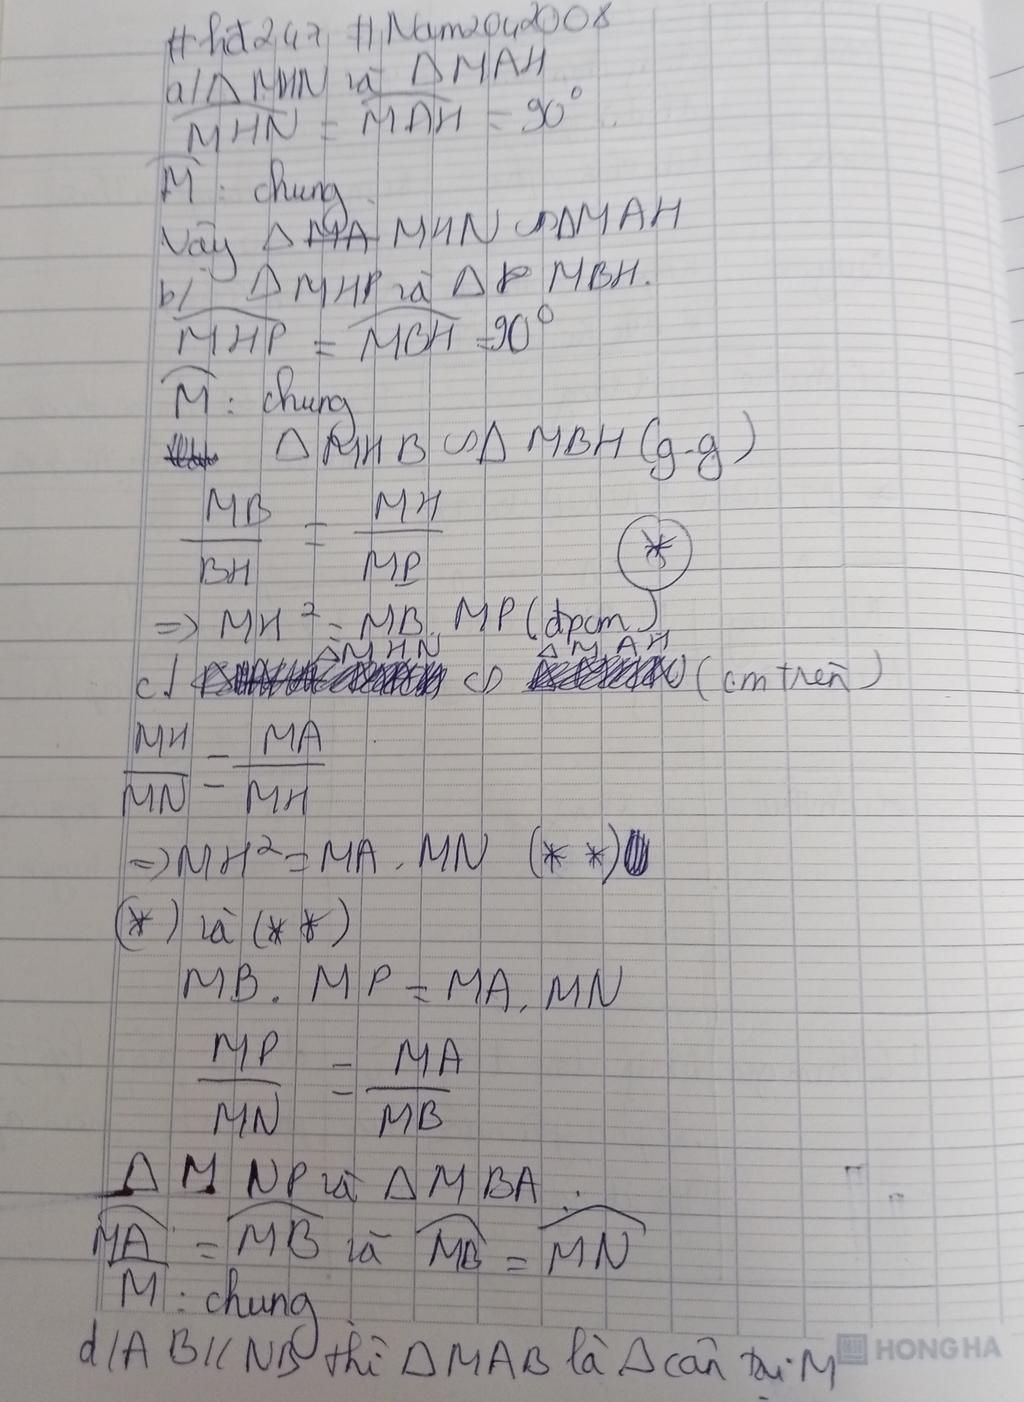 #hd247 #Nam2042008
a/ Δ MHN và Δ MAH
MHN = MAH = 90°
M : chung
Vậy Δ MHN ∽ Δ MAH
b/ Δ MHP và Δ MBH.
MHP = MBH = 90°
M : chung
Δ MHB ∽ Δ MBH (g-g)
MB/BH = MH/MP (*)
=> MH² = MB. MP (đpcm)
c/ Δ MHN ∽ Δ MAH (cm trên)
MH/MN = MA/MH
=> MH² = MA . MN (**)
(*) và (**)
MB. MP = MA. MN
MP/MN = MA/MB
Δ MNP và Δ MBA :
MA = MB và MB = MN
M : chung
d/ AB // NB thì Δ MAB là Δ cân tại M
HONG HA